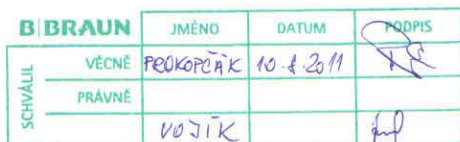 B|BRAUN JMÉNO DATUM PODPIS
SCHVÁLIL
VĚCNĚ PROKOPČÁK 10.8.2011
PRÁVNĚ
VOJÍK